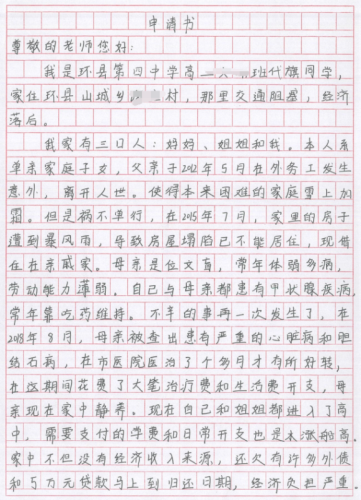 申请书
尊敬的老师您好:
我是环县第四中学高二 班代旗同学,
家住环县山城乡 村,那里交通阻塞,经济
落后。
我家有三口人:妈妈、姐姐和我。本人系
单亲家庭子女,父亲于2012年5月在外务工发生
意外,离开人世。使得本来困难的家庭雪上加
霜。但是祸不单行,在2015年7月,家里的房子
遭到暴风雨,导致房屋塌陷已不能居住,现借
住在亲戚家。母亲是位文盲,常年体弱多病,
劳动能力薄弱。自己与母亲都患有甲状腺疾病,
常年靠吃药维持。不幸的事再一次发生了,在
2018年8月,母亲被查出患有严重的心脏病和胆
结石病,在市医院医治了个多月才有所好转,
在这期间花费了大量治疗费和生活费开支,母
亲现在家中静养。现在自己和姐姐都进入了高
中,需要支付的学费和日常开支也是水涨船高。
家中不但没有经济收入来源,还欠有许多外债
和5万元贷款马上到归还日期,经济欠担严重。